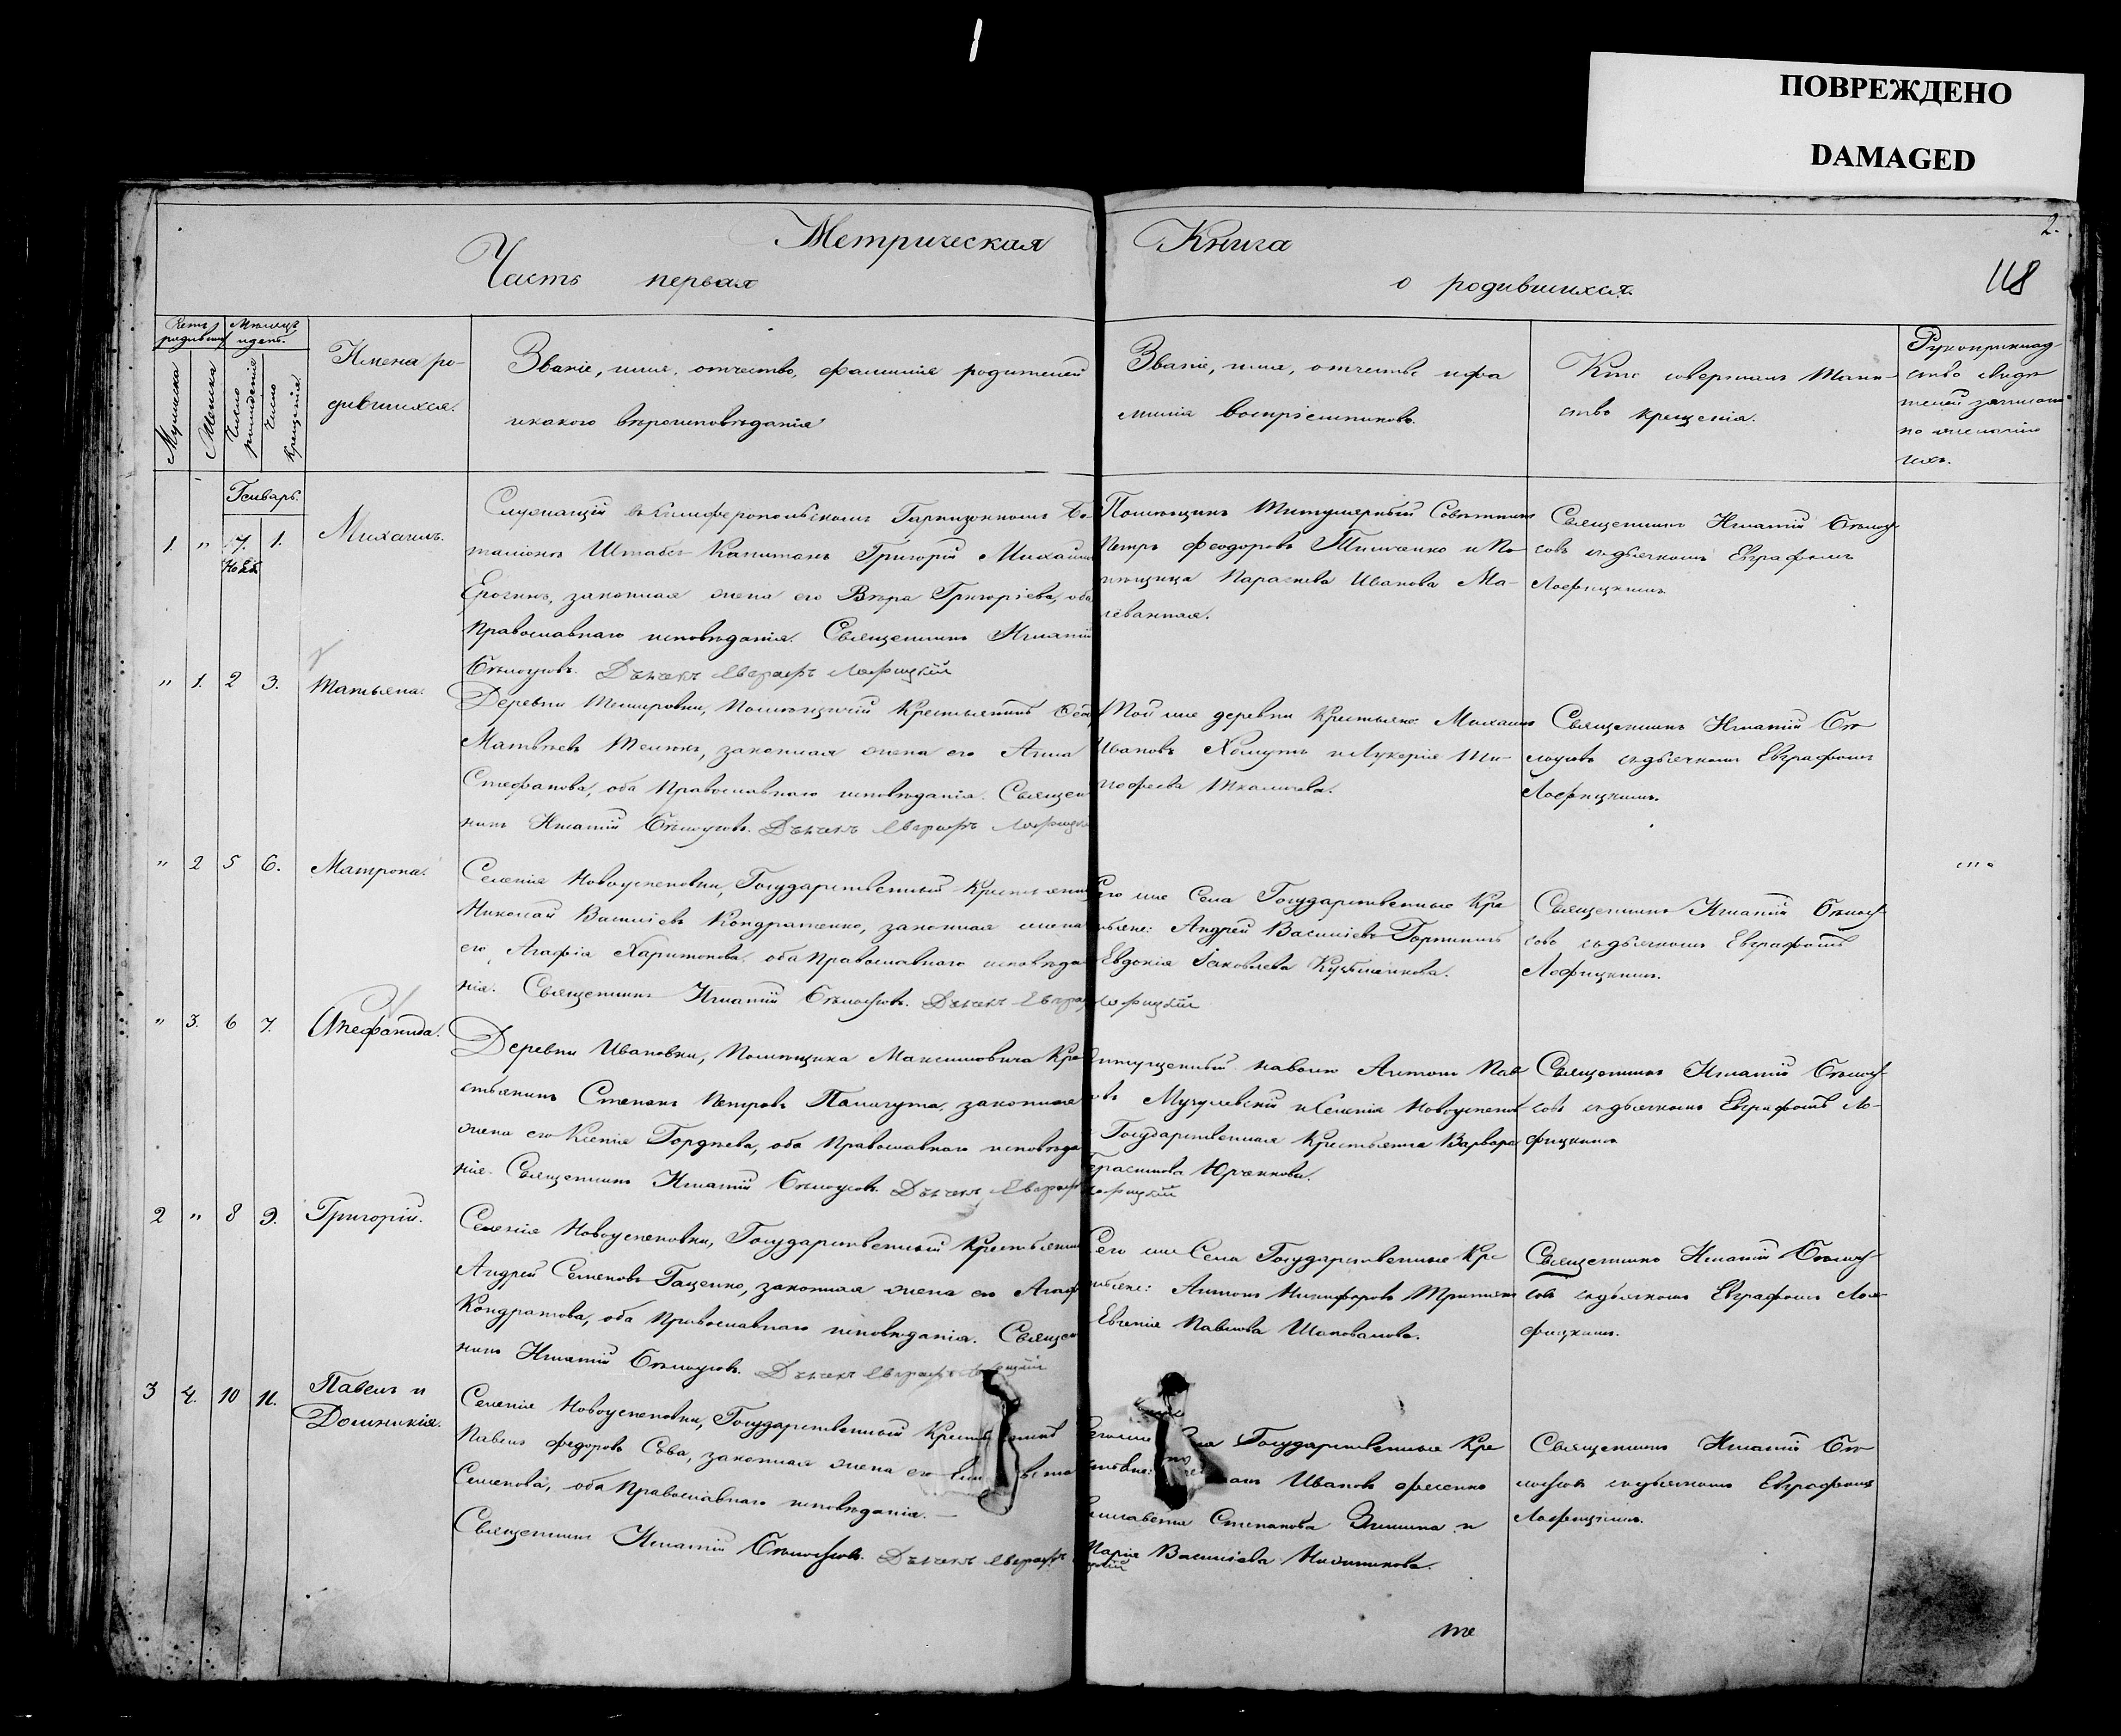 ПОВРЕЖДЕНО
DAMAGED
2.
118
Метрическая Книга
Часть первая о родившихся.
Счетъ родившихся
Мѣсяцъ и день.
Мужеска
Женска
Число рожденія
Число крещенія
Имена ро-
дившихся.
Званіе, имя, отчество, фамилія родителей
и какого вѣроисповѣданія
Званіе, имя, отчество и фа
милія воспріемниковъ.
Кто совершалъ Таин-
ство крещенія.
Рукоприклад-
ство свидѣ
телей записи
по желанію
ихъ.
Генварь.
1. " 17. 1.
Нояб.
Михаилъ.
Служащій въ Симферопольскомъ Гарнизонномъ Ба-
таліонѣ Штабсъ-Капитанъ Григорій Михаил
законная жена его Вѣра Григоріева, оба
Православнаго исповѣданія. Священникъ Игнатій
Бѣлоусовъ. Дьячекъ Евграфъ Лофицкій
Помѣщикъ Титулярный Совѣтникъ
Петръ Феодоровъ Тимченко и По
мѣщица Параскева Иванова Ма-
леванная.
Священникъ Игнатій Бѣлоу-
совъ съ дьячкомъ Евграфомъ
Лофицкимъ.
" 1. 2 3.
Татьяна.
Деревни Темировки, Помѣщичій Крестьянинъ
Матвѣевъ законная жена его Анна
Стефанова, оба Православнаго исповѣданія. Священ
никъ Игнатій Бѣлоусовъ. Дьячекъ Евграфъ Лофицк
Той же деревни Крестьяне: Михаилъ
Ивановъ Хомутъ и Лукерія Ти-
мофеева Ткаличева.
Священникъ Игнатій Бѣ
лоусовъ съ дьячкомъ Евграфомъ
Лофицкимъ.
" 2 5 6.
Матрона.
Селенія Новоуспеновки, Государственный Крестьянин
Николай Василіевъ Кондратенко, законная жена
его, Агафія Харитонова, оба Православнаго исповѣда
нія. Священникъ Игнатій Бѣлоусовъ. Дьячекъ Евграф Лофицкій
Сего же Села Государственные Кре
стьяне: Андрей Василіевъ Горпинич
Евдокія Іаковлева Кузьменкова.
Священникъ Игнатій Бѣлоу-
совъ съ дьячкомъ Евграфомъ
Лофицкимъ.
" 3. 6 7.
Епефанида.
Деревни Ивановки, Помѣщика Максимовича Кре
стьянинъ Степанъ Петровъ Паличута, законная
жена его Ксенія Гордѣева, оба Православнаго исповѣда
нія. Священникъ Игнатій Бѣлоусовъ. Дьячекъ Евграф Лофицкій
Отпущенный на волю Антонъ Пав
овъ Мучулевскій и Селенія Новоуспенов
Государственная Крестьянка Варвара
Герасимова Юрченкова.
Священникъ Игнатій Бѣлоу-
совъ съ дьячкомъ Евграфомъ Ло-
фицкимъ
2 " 8 9.
Григорій.
Селенія Новоуспеновки, Государственный Крестьянин
Андрей Семеновъ Гащенко, законная жена его Агаф
Кондратова, оба Православнаго исповѣданія. Священ
никъ Игнатій Бѣлоусовъ. Дьячекъ Евграфъ Лофицкій
Сего же Села Государственные Кре
стьяне: Антонъ Никифоровъ
Евгенія Павлова Шаповалова.
Священникъ Игнатій Бѣлоу-
совъ съ дьячкомъ Евграфомъ Ло-
фицкимъ.
3 4. 10 11.
Павелъ и
Домникія.
Селенія Новоуспеновки, Государственный Крестьянинъ
Павелъ Федоровъ Сова, законная жена его
Семенова, оба Православнаго исповѣданія. —
Священникъ Игнатій Бѣлоусовъ. Дьячекъ Евграфъ
Сего же Села Государственные Кре
стьяне: Ивановъ Фесенко
Елисавета Степанова Зимина и
Марія Василіева
Священникъ Игнатій Бѣ
лоусовъ съ дьячкомъ Евграфомъ
Лофицкимъ.
те